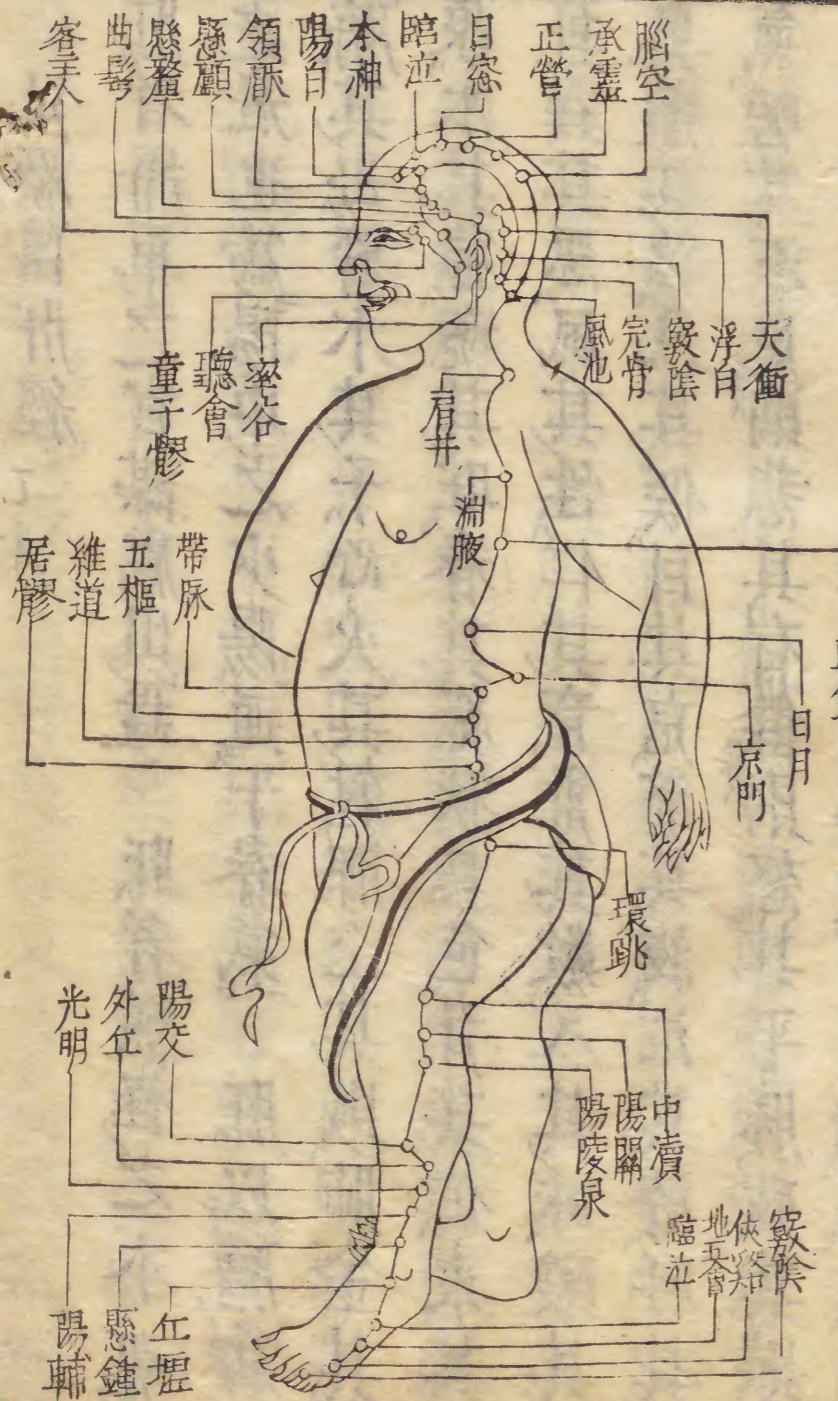 腦空
承靈
正營
目窓
臨泣
本神
陽白
頷厭
懸顱
懸釐
曲鬢
客主人
天衝
浮白
竅陰
完骨
風池
率谷
聽會
童子髎
肩井
淵腋
帶脉
五樞
維道
居髎
日月
京門
環跳
中瀆
陽關
陽陵泉
陽交
外丘
光明
竅陰
俠谿
地五會
臨泣
丘墟
懸鍾
陽輔